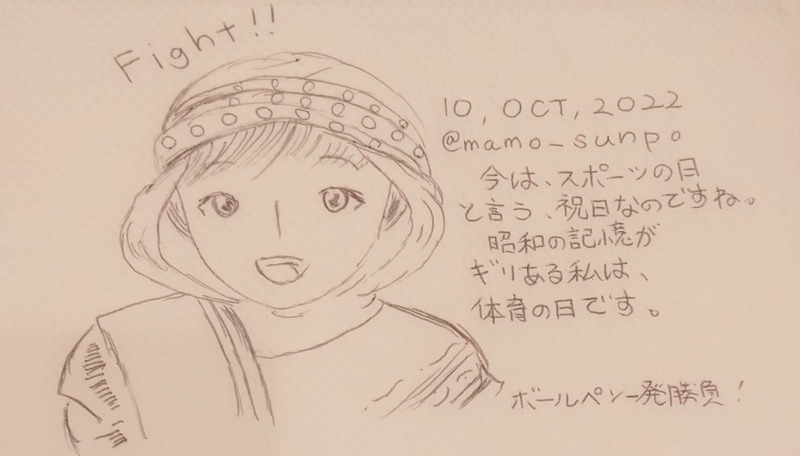 Fight!!
10, OCT, 2022
@mamo_sunpo
今は、スポーツの日
と言う、祝日なのですね。
昭和の記憶が
ギリある私は、
体育の日です。
ボールペン一発勝負！